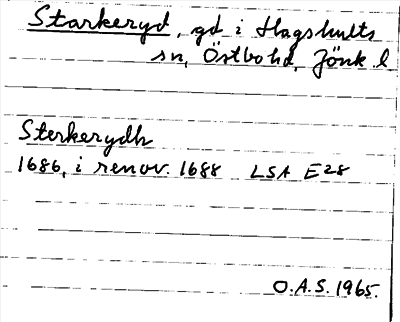 Starkeryd, gd i Hagshults
sn, Östbo hd, Jönk l
Sterkerydh
1686, i renov. 1688 LSA E28
O.A.S. 1965.